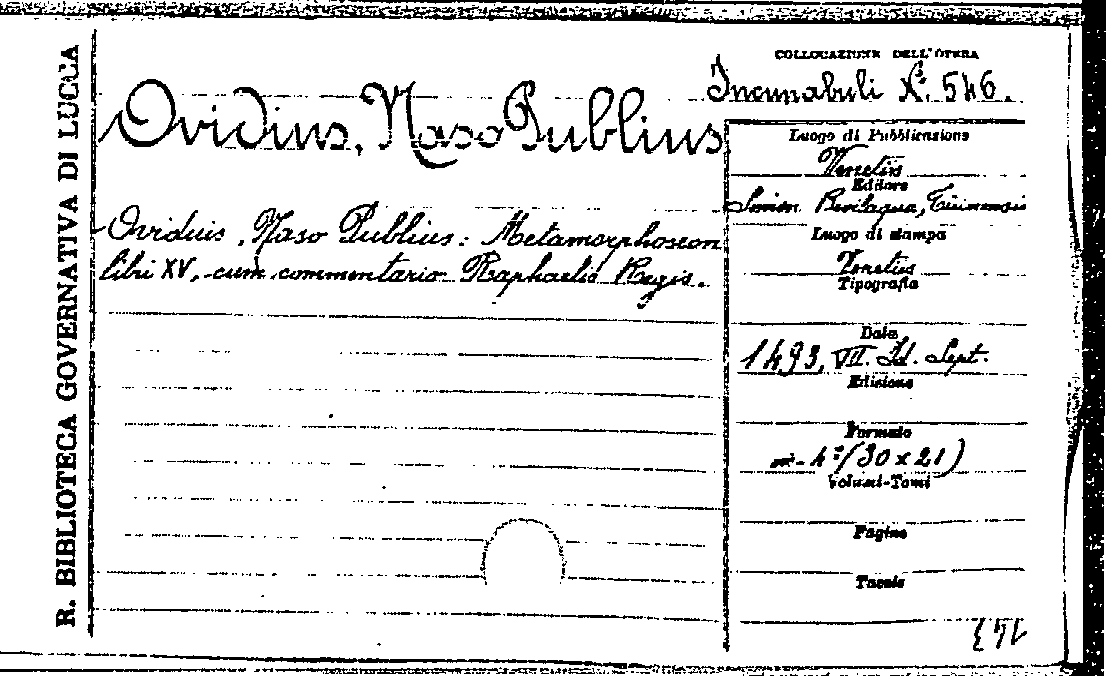 R. BIBLIOTECA GOVERNATIVA DI LUCCA
Ovidius, Naso Publius
Ovidius, Naso Publius: Metamorphoseon
libri XV, cum commentario Raphaelis Regis.
COLLOCAZIONE DELL'OPERA
Incunabuli N. 546.
Luogo di Pubblicazione
Venetiis
Editore
Simon Bevilaqua, Ticinensis
Luogo di stampa
Venetiis
Tipografia
Data
1493, VII. Id. Sept.
Edizione
Formato
in-4° (30 x 21)
Volumi-Tomi
Pagine
Tavole